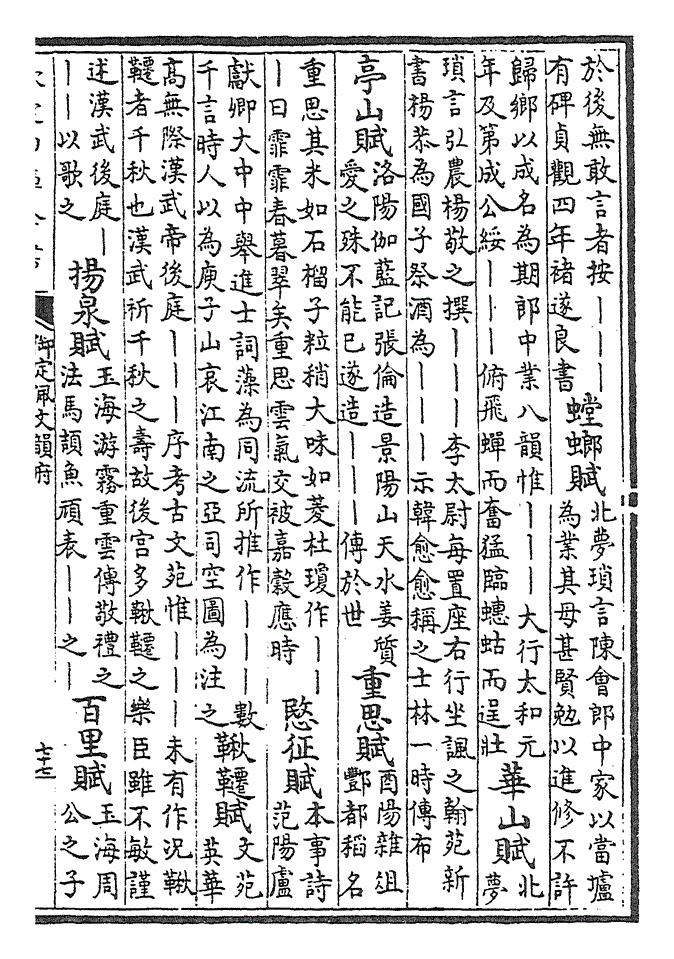 於後無敢言者按｜｜｜
有碑貞觀四年褚遂良書
螳螂賦
北夢瑣言陳會郎中家以當壚
為業其母甚賢勉以進修不許
歸鄉以成名為期郎中業八韻惟｜｜｜大行太和元
年及第成公綏｜｜｜俯飛蟬而奮猛臨蟪蛄而逞壯
華山賦
北
夢
瑣言弘農楊敬之撰｜｜｜李太尉每置座右行坐諷之翰苑新
書楊恭為國子祭酒為｜｜｜示韓愈愈稱之士林一時傳布
亭山賦
洛陽伽藍記張倫造景陽山天水姜質
愛之殊不能已遂造｜｜｜傳於世
重思賦
酉陽雜俎
酆都稻名
重思其米如石榴子粒稍大味如菱杜瓊作｜｜
｜曰霏霏春暮翠矣重思雲氣交被嘉穀應時
愍征賦
本事詩
范陽盧
獻卿大中中舉進士詞藻為同流所推作｜｜｜數
千言時人以為庾子山哀江南之亞司空圖為注之
鞦韆賦
文苑
英華
高無際漢武帝後庭｜｜｜序考古文苑惟｜｜｜未有作況鞦
韆者千秋也漢武祈千秋之壽故後宮多鞦韆之樂臣雖不敏謹
述漢武後庭｜
｜｜以歌之
揚泉賦
玉海游霧重雲傳敬禮之
法馬頡魚頑表｜｜之｜
百里賦
玉海周
公之子
御定佩文韻府
七十七